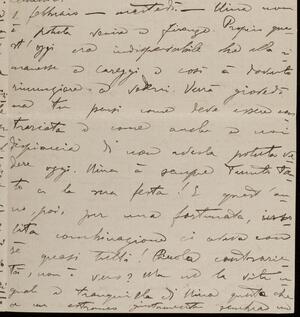 1 febbraio – martedì – Nina non
potuta venire a Firenze. Proprio que-
st'oggi era indispensabile che ella ri-
manesse a Careggi e così è dovuta
rinunziare a vederci. Verrà giovedì
ma tu pensi come deve essere con-
trariata e come anche a noi
dispiaccia di non averla potuta ve-
dere oggi. Nina è sempre
la sua festa! E quest'an-
no, poi, per una fortunata,
combinazione ci aveva con
sé quasi tutti! contrarie-
tà, non è vero? Ma ne la vita
quale è tranquilla di Nina questa che
a un estraneo giustamente